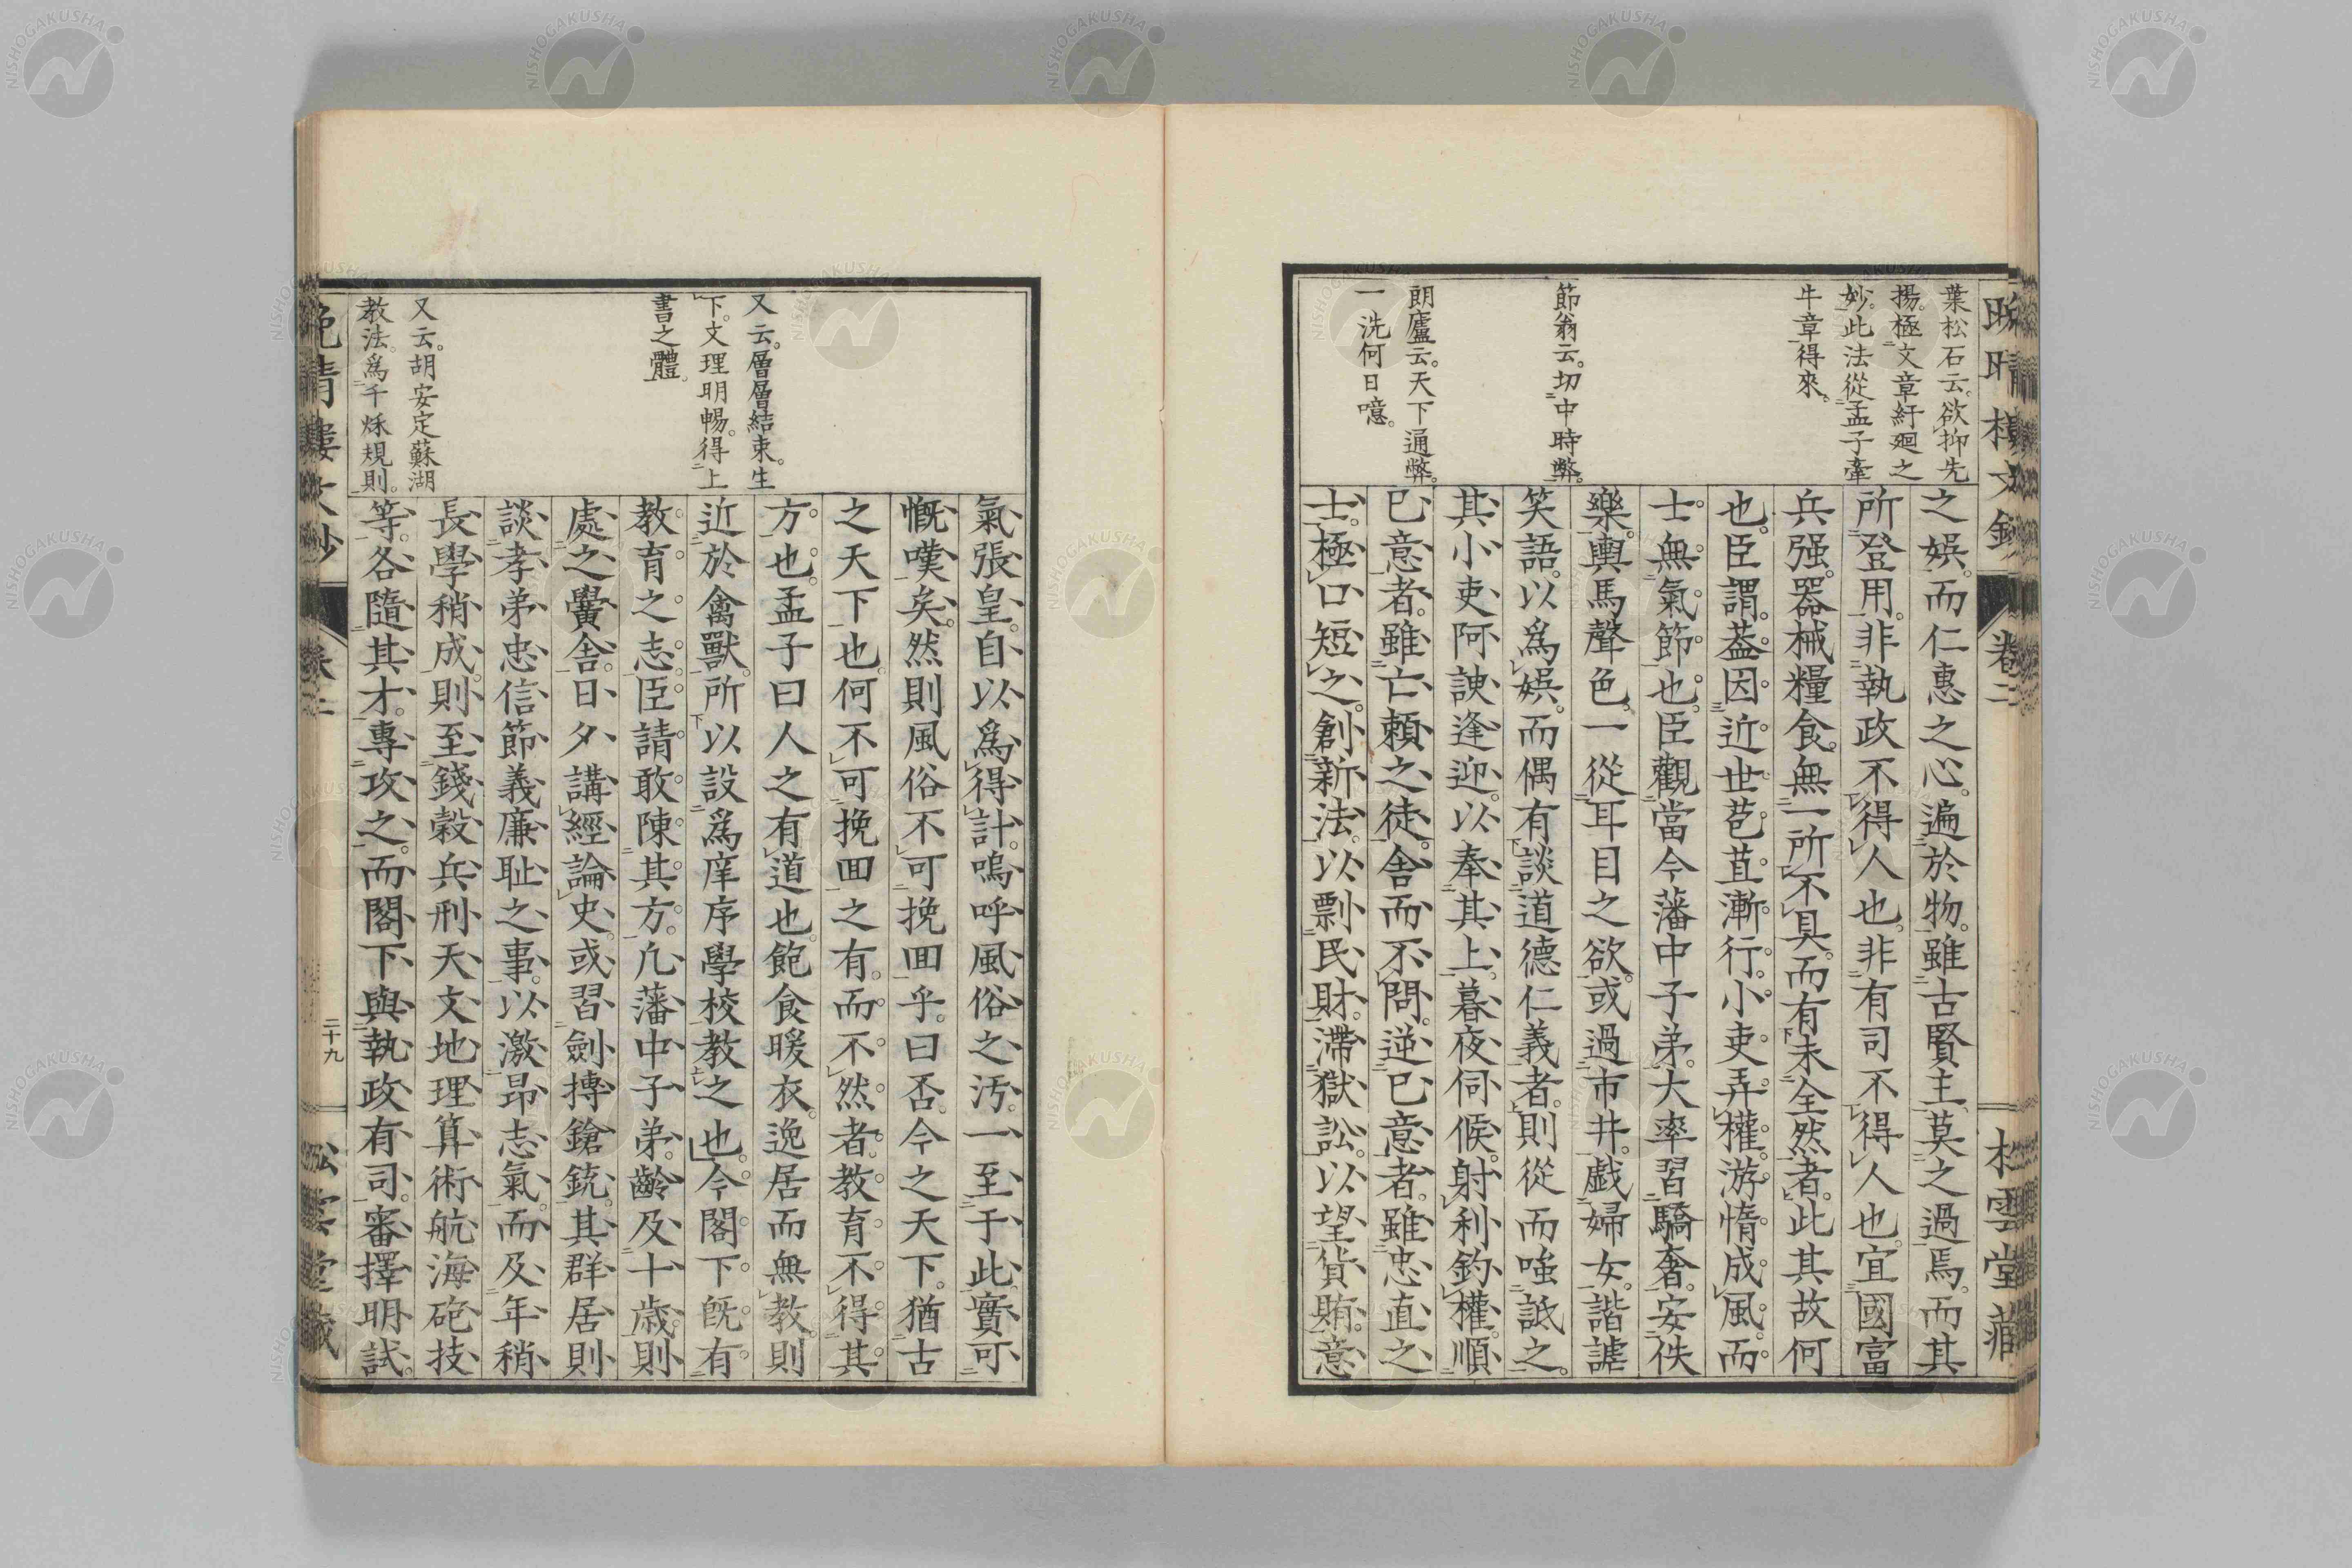 晩晴樓文鈔
卷二
松雲堂藏
葉松石云。欲抑先
揚。極文章紆廻之
妙。此法從孟子牽
牛章得來。
節翁云。切中時弊。
朗廬云。天下通弊。
一洗何日噫。
之娯。而仁惠之心。遍於物。雖古賢主、莫之過焉。而其
所登用。非執政不得人也。非有司不得人也。宜國富
兵强。器械糧食。無一所不具。而有未全然者。此其故何
也。臣謂。葢因近世苞苴漸行。小吏弄權。游惰成風。而
士無氣節也。臣觀當今藩中子弟。大率習驕奢。安佚
樂。輿馬聲色。一從耳目之欲。或過市井。戯婦女。諧謔
笑語。以爲娯。而偶有談道德仁義者。則從而嗤詆之。
其小吏阿諛逢迎。以奉其上。暮夜伺候。射利釣權。順
已意者。雖亡頼之徒。舍而不問。逆已意者。雖忠直之
士。極口短之。創新法。以剽民財。滯獄訟。以望貨賄。意
又云。層層結束。生
下。文理明暢。得上
書之體。
又云。胡安定蘇湖
教法。爲千烁規則。
氣張皇。自以爲得計。嗚呼風俗之汚。一至于此。實可
慨嘆矣。然則風俗不可挽回乎。曰否。今之天下。猶古
之天下也。何不可挽回之有。而不然者。教育不得其
方也。孟子曰人之有道也。飽食暖衣。逸居而無教。則
近於禽獸。所以設爲庠序學校教之也。今閣下。旣有
教育之志。臣請敢陳其方。凢藩中子弟。齡及十歳。則
處之黌舎。日夕講經論史。或習劍摶鎗銃。其群居則
談孝弟忠信節義廉耻之事。以激昂志氣。而及年稍
長學稍成。則至錢穀兵刑天文地理算術航海砲技
等。各隨其才。專攻之。而閣下與執政有司。審擇明試。
晩晴樓文鈔
卷二
二十九
松雲堂藏